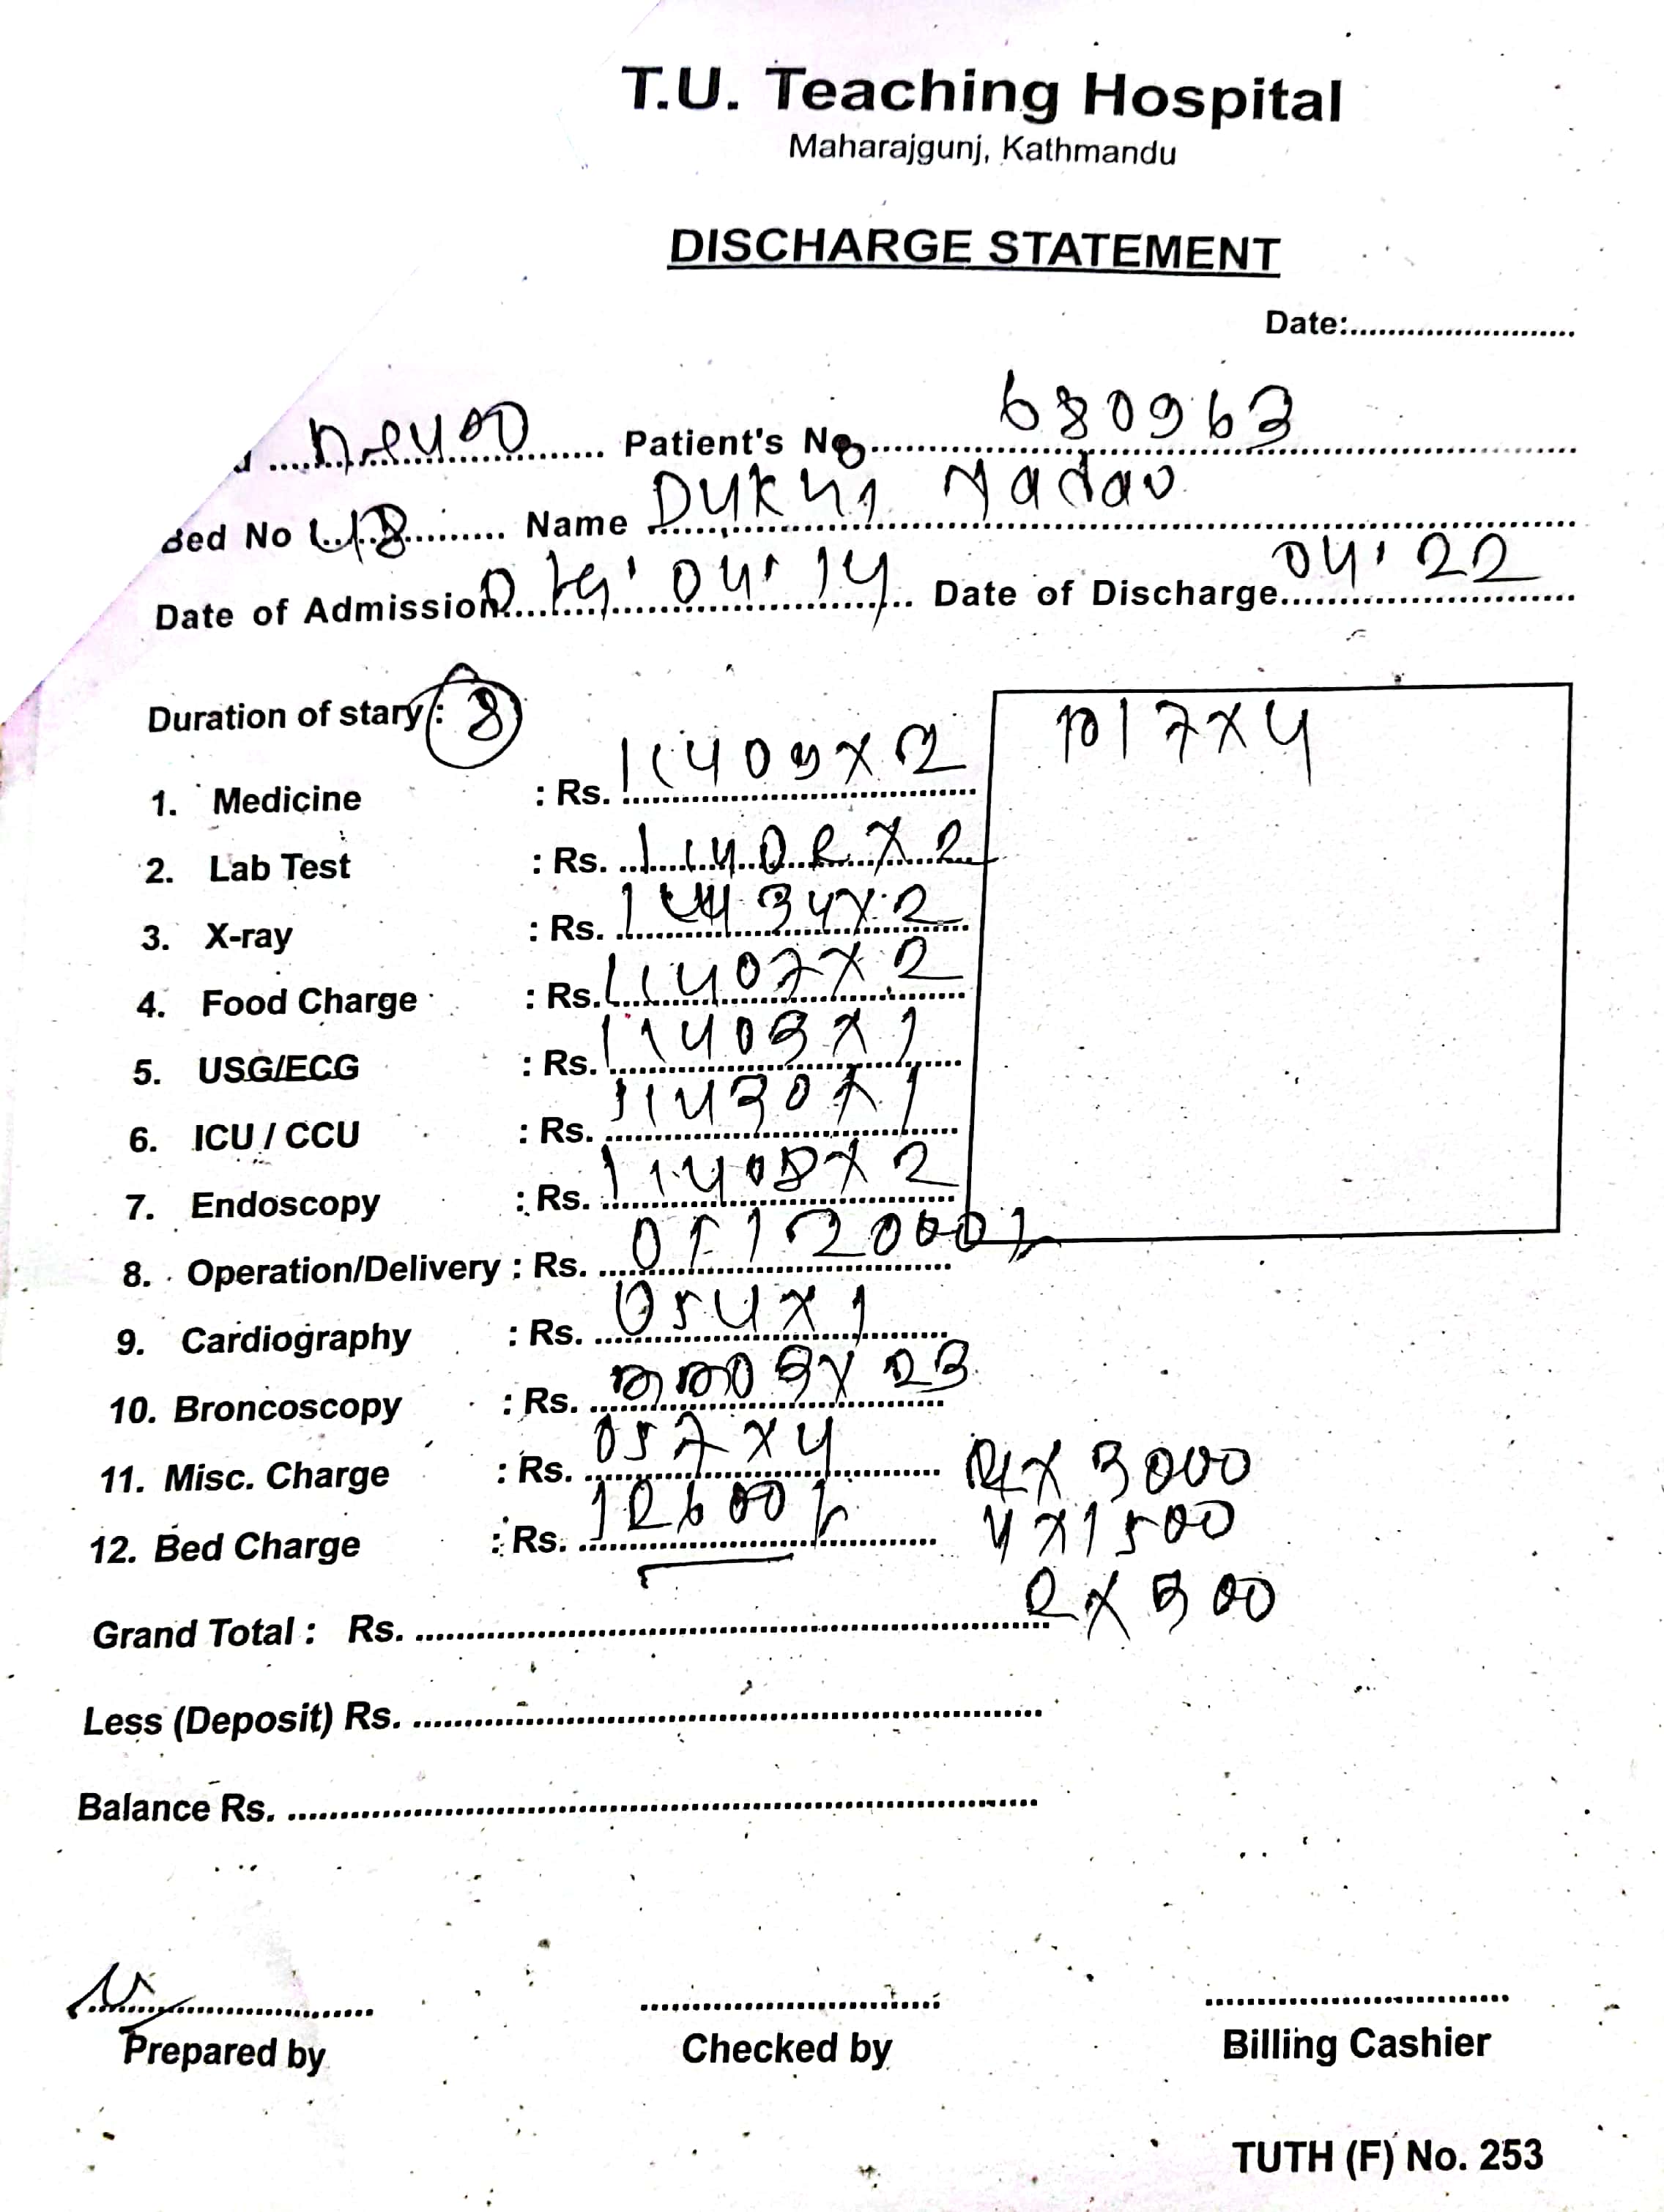 T.U. Teaching Hospital
Maharajgunj, Kathmandu
DISCHARGE STATEMENT
Date:........................
Patient's No. 680963
Bed No 48 Name Dukhi Yadav
Date of Admission 04' 14 Date of Discharge 04' 22
Duration of stary : 8
1017x4
1. Medicine : Rs. 11409x2
2. Lab Test : Rs. 11402x2
3. X-ray : Rs. 11434x2
4. Food Charge : Rs. 11407x2
5. USG/ECG : Rs. 11403x1
6. ICU / CCU : Rs. 11430x1
7. Endoscopy : Rs. 11408x2
8. Operation/Delivery : Rs.
9. Cardiography : Rs. 054x1
10. Broncoscopy : Rs.
11. Misc. Charge : Rs. 057x4 x 3000
12. Bed Charge : Rs. 12600/- 4x1500
Grand Total : Rs. 2x300
Less (Deposit) Rs.
Balance Rs.
Prepared by Checked by Billing Cashier
TUTH (F) No. 253